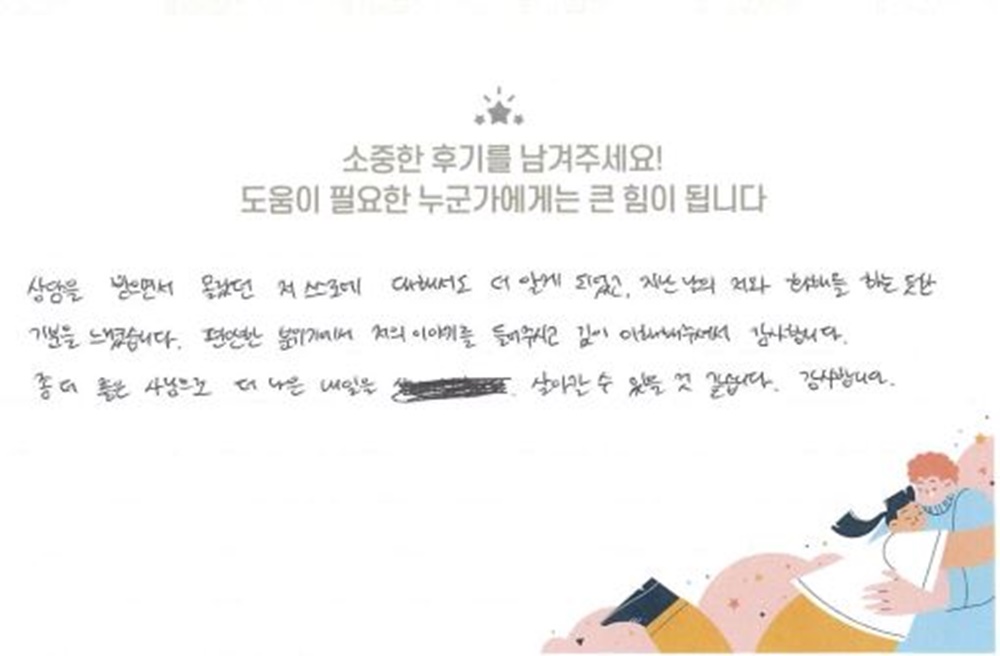 소중한 후기를 남겨주세요!
도움이 필요한 누군가에게는 큰 힘이 됩니다
상담을 받으면서 몰랐던 저 스스로에 대해서도 더 알게 되었고, 지난 날의 저와 화해를 하는 듯한
기분을 느꼈습니다. 편안한 분위기에서 저의 이야기를 들어주시고 깊이 이해해주셔서 감사합니다.
좀 더 좋은 사람으로 더 나은 내일을 살아갈 수 있을 것 같습니다. 감사합니다.